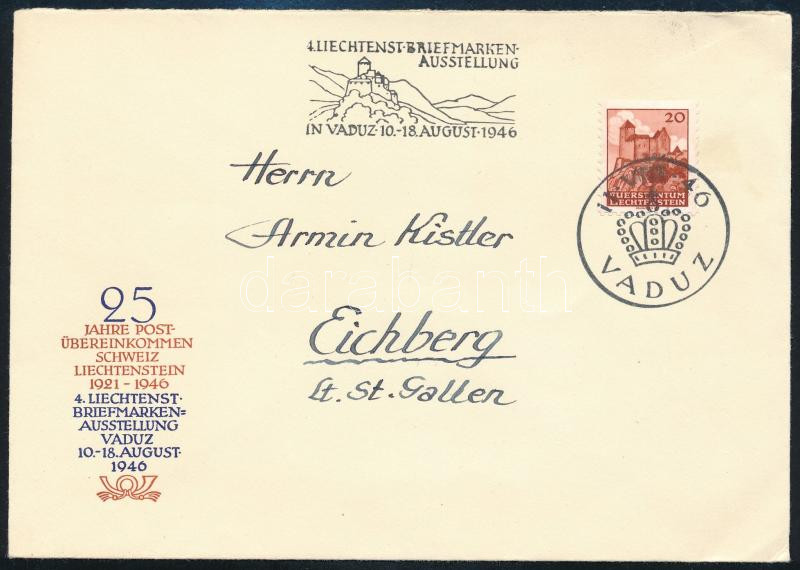 4. LIECHTENST· BRIEFMARKEN-
AUSSTELLUNG
IN VADUZ·10.-18.AUGUST·1946
20
FUERSTENTUM
LIECHTENSTEIN
46
VADUZ
Herrn
Armin Kistler
darabanth
Eichberg
Kt. St. Gallen
25
JAHRE POST-
ÜBEREINKOMMEN
SCHWEIZ
LIECHTENSTEIN
1921 - 1946
4. LIECHTENST·
BRIEFMARKEN=
AUSSTELLUNG
VADUZ
10.-18.AUGUST·
1946